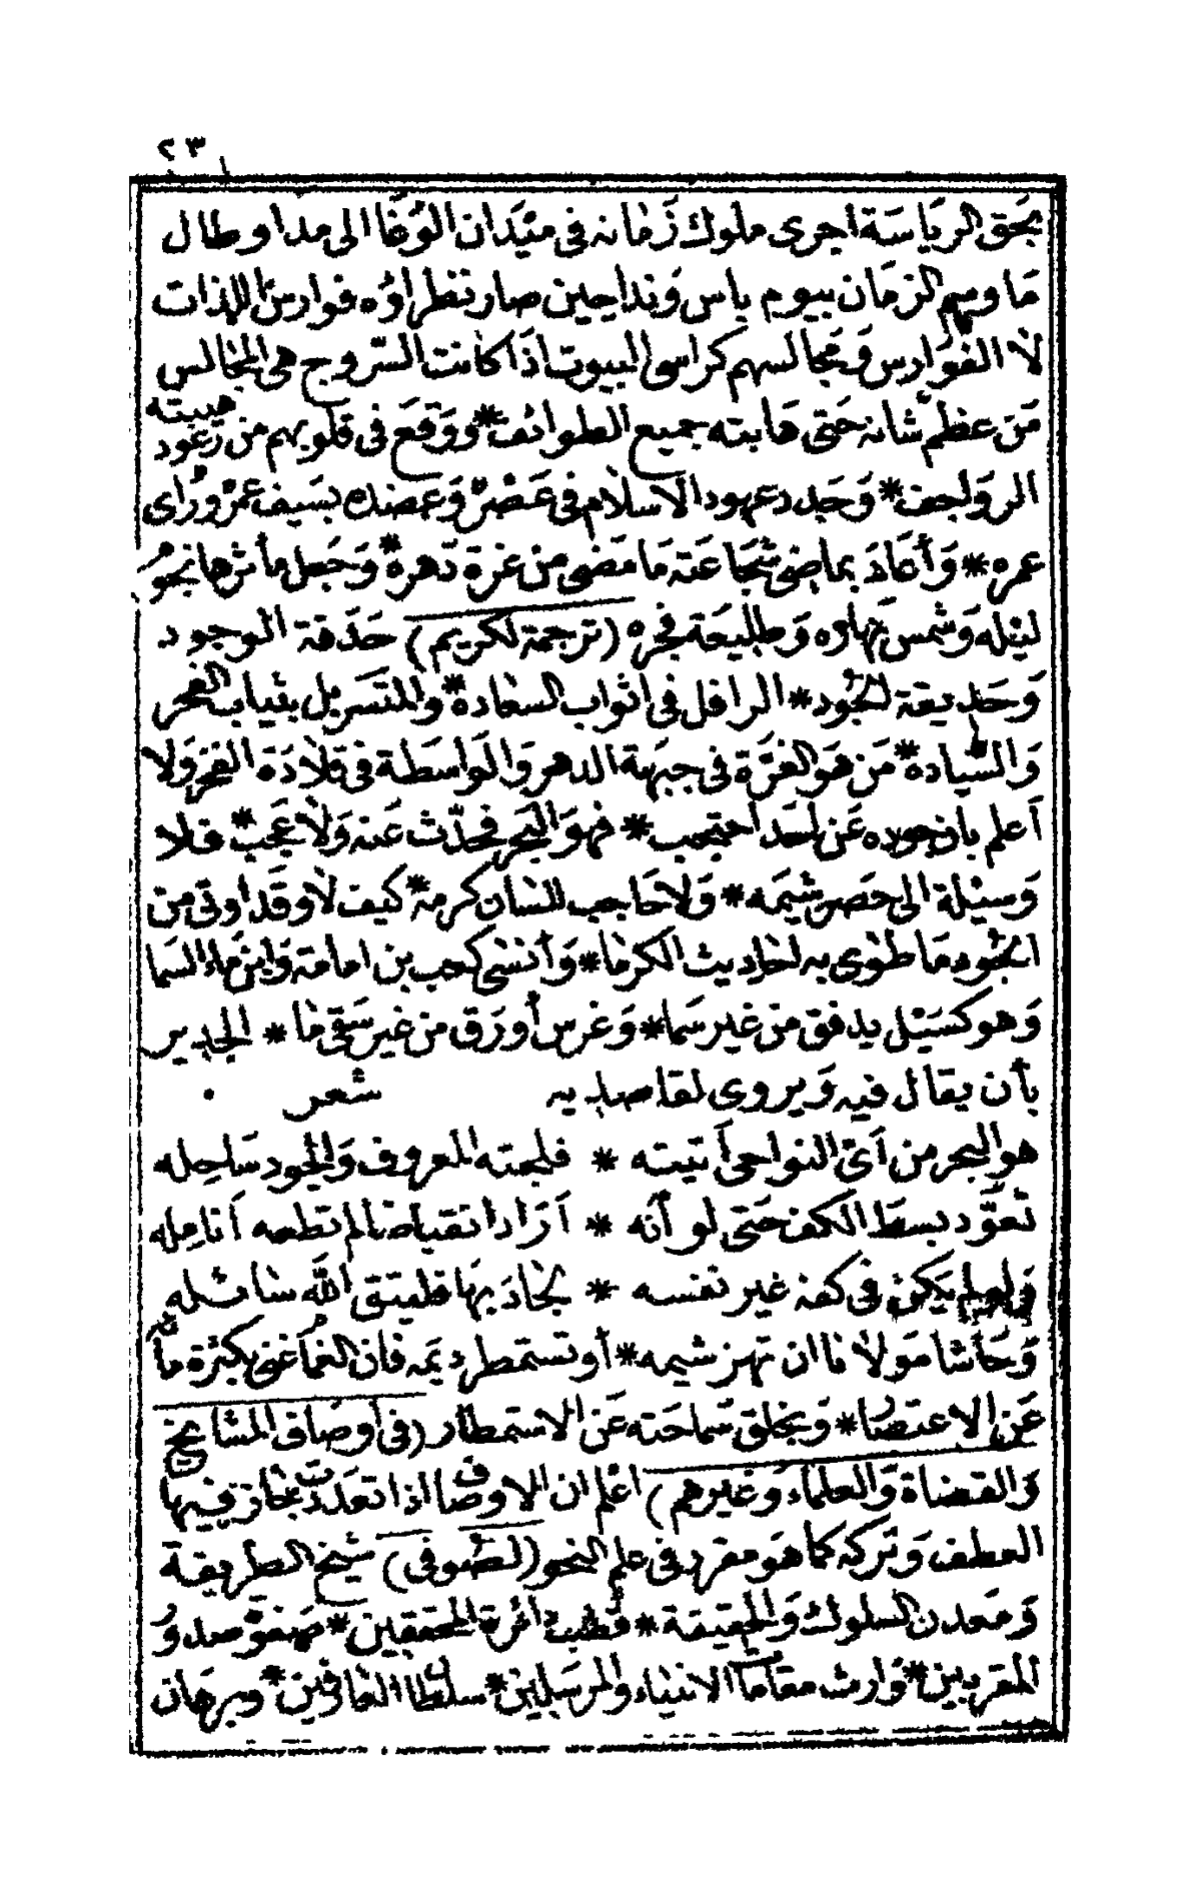 ٢٣
بحق الرياسة أجرى ملوك زمانه في ميدان الوغا الى مدا وطال
ما وسم الزمان بيوم باس وندا حين صار نظراؤه فوارس اللذات
لا الفوارس ومجالسهم كراسى البيوت اذا كانت السروج هى المجالس
من عظم شانه حتى هابته جميع الطوائف * ووقع فى قلوبهم من رعود هيبته
الرواجف * وجدد عهود الاسلام فى عصره وعضده بسيف عمر وراى
عمره * وأعاد بماضى شجاعته ما مضى من غرة دهره * وجعل مأثرها نجوم
ليله وشمس نهاره وطليعة فجره (ترجمة لكريم) حدقة الوجود
وحديقة الجود * الرافل فى اثواب السعادة * والمتسربل بثياب الفخر
والسيادة * من هو الغرة فى جبهة الدهر والواسطة فى قلادة الفخر ولا
أعلم بان جوده عن احد احتجب * فهو البحر فحدث عنه ولا عجب * فلا
وسيلة الى حصر شيمه * ولا حاجب للسان كرمه * كيف لا وقد اوتى من
الجود ما طوى به احاديث الكرما * وأنسى كعب بن امامة وابن ماء السما
وهو كسيل يدفق من غير سما * وغرس أورق من غير سقى ما * الجدير
بأن يقال فيه ويروى لقاصديه شعر
هو البحر من أى النواحى أتيته * فلجته المعروف والجود ساحله
تعود بسط الكف حتى لو أنه * أراد انقباضا لم تطعه أنامله
ولو لم يكن فى كفه غير نفسه * لجاد بها فليتق الله سائله
وحاشا مولانا ان تهز شيمه * أو تستمطر ديمه فان الغمام غنى بكثرة مائه
عن الاعتصار * ويخلق سماحته عن الاستمطار (فى أوصاف المشايخ
والقضاة والعلماء وغيرهم) اعلم ان الاوصاف اذا تعددت جاز فيها
العطف وتركه كما هو مقرر فى علم النحو (لصوفى) شيخ الطريقة
ومعدن السلوك والحقيقة * قطب دائرة المحققين * صفوة صدور
المقربين * وارث مقامات الانبياء والمرسلين * سلطان العارفين * وبرهان